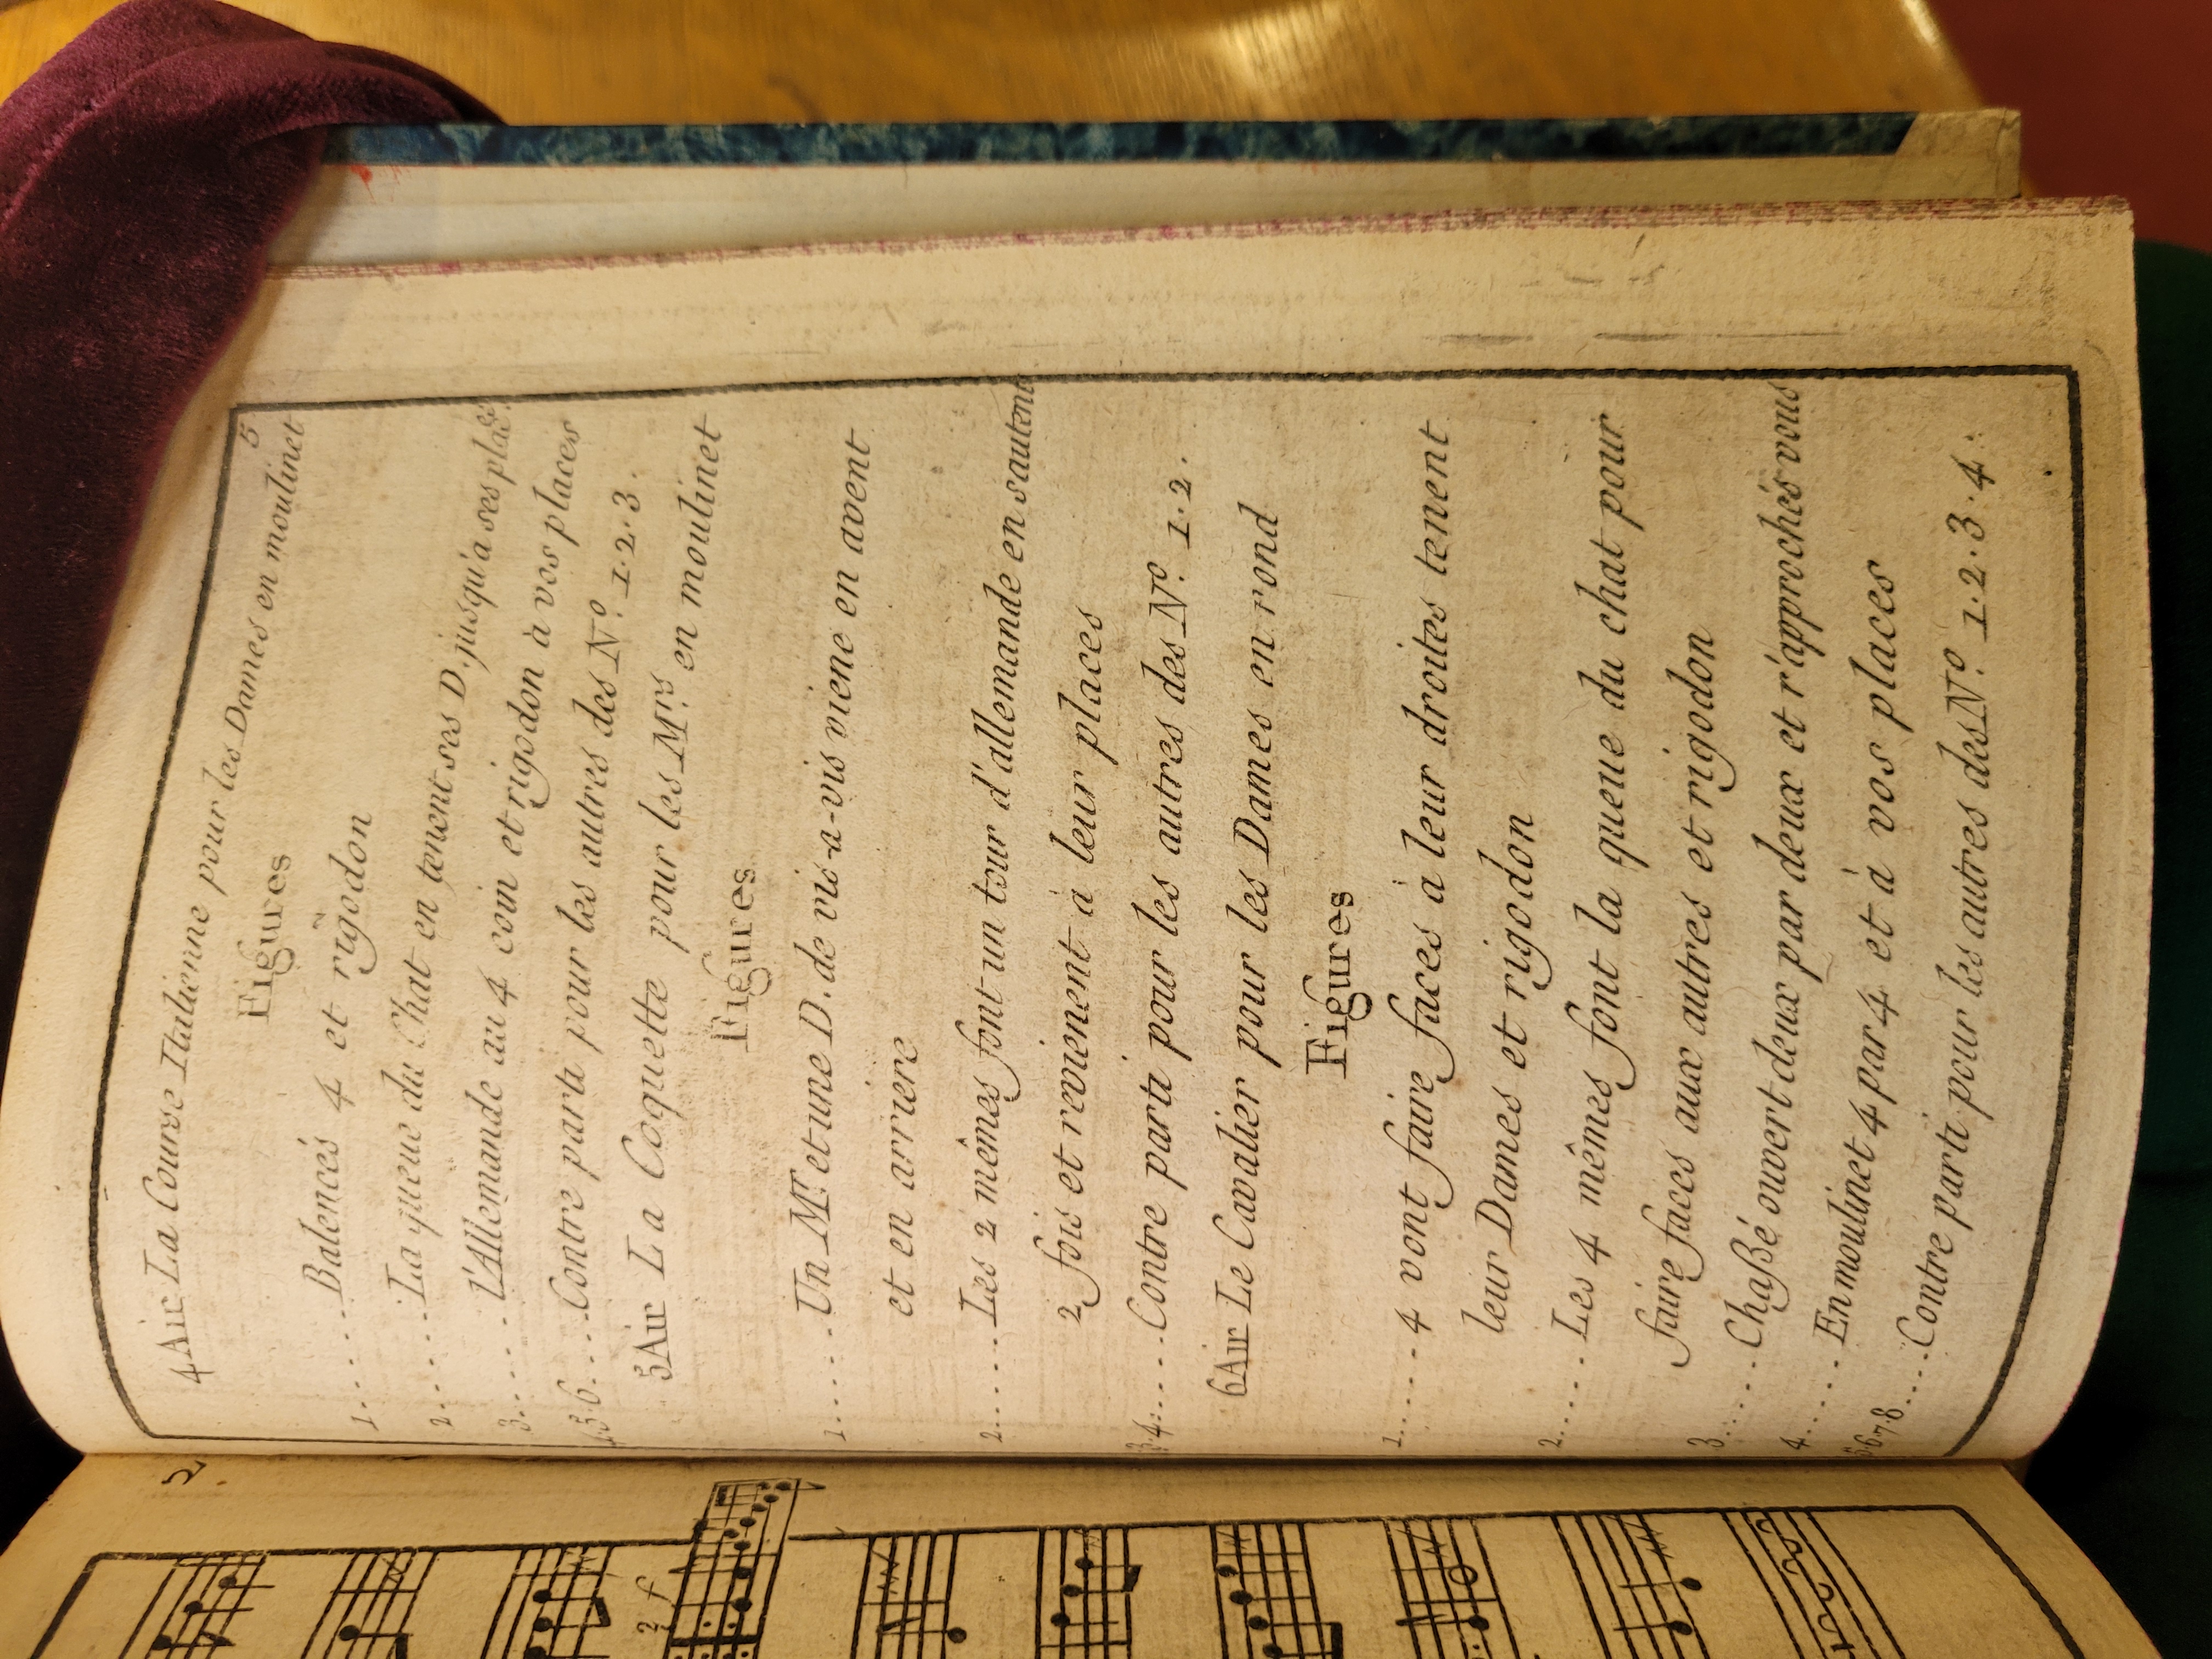 5
4 Air La Course Italienne pour les Dames en moulinet
Figures
1..... Balencés 4 et rigodon
2..... La queue du Chat en tenent ses D. jusqu'a ses places
3..... l'Allemande au 4 coin et rigodon à vos places
4 5 6... Contre parti pour les autres des N.º 1. 2. 3.
5 Air La Coquette pour les M.rs en moulinet
Figures
1..... Un M.r et une D. de vis-a-vis viene en avent
et en arriere
2..... Les 2 mêmes font un tour d'allemande en sautent
2 fois et revienent à leur places
3. 4..... Contre parti pour les autres des N.º 1. 2.
6 Air Le Cavalier pour les Dames en rond
Figures
1..... 4 vont faire faces à leur droites tenent
leur Dames et rigodon
2..... Les 4 mêmes font la queue du chat pour
faire faces aux autres et rigodon
3..... Chaßé ouvert deux par deux et r'approchés vous
4..... En moulinet 4 par 4 et à vos places
5 6. 7. 8..... Contre parti pour les autres des N.º 1. 2. 3. 4.
2 f